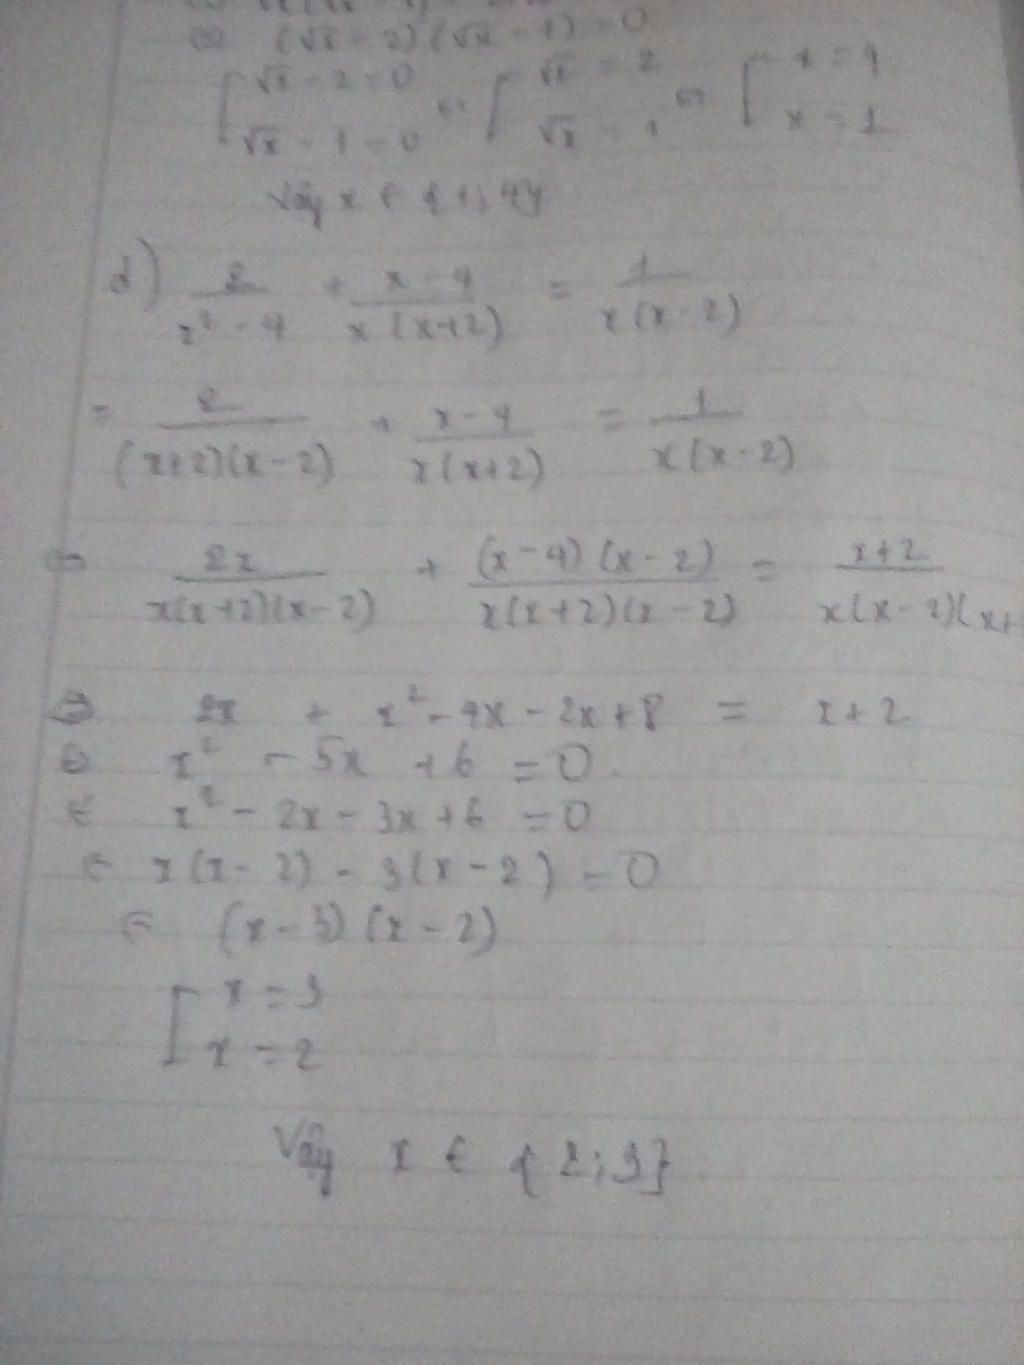 ⇔ (√x - 2)(√x - 1) = 0
[ √x - 2 = 0 ⇔ [ √x = 2 ⇔ [ x = 4
√x - 1 = 0 √x = 1 x = 1
Vậy x ∈ {1; 4}
d) 2/(x² - 4) + (x - 4)/(x(x+2)) = 1/(x(x - 2))
= 2/((x+2)(x - 2)) + (x - 4)/(x(x+2)) = 1/(x(x - 2))
⇔ 2x/(x(x+2)(x - 2)) + (x - 4)(x - 2)/(x(x+2)(x - 2)) = (x+2)/(x(x - 2)(x+
⇒ 2x + x² - 4x - 2x + 8 = x + 2
⇔ x² - 5x + 6 = 0
⇔ x² - 2x - 3x + 6 = 0
⇔ x(x - 2) - 3(x - 2) = 0
⇔ (x - 3)(x - 2)
[ x = 3
x = 2
Vậy x ∈ {2; 3}